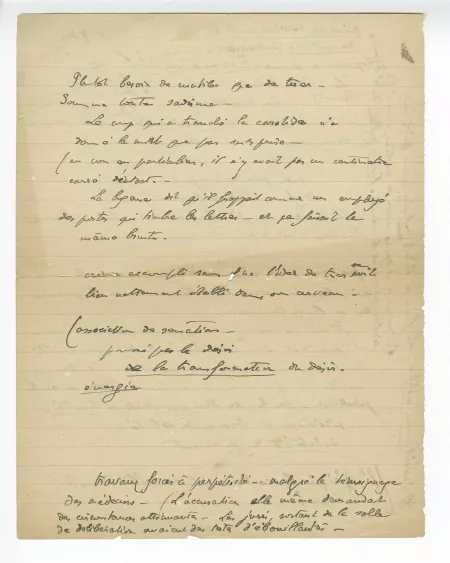 Plutôt besoin de mutiler que de tuer –
Somme toute sadisme –
Le coup qui a tranché la carotide n'a
donné la mort que par surprise –
(au cou en particulier, il n'y avait pas un centimètre
carré d'intact. –
La légende dit qu'il frappait comme un employé
des postes qui timbre les lettres – et ça faisait le
même bruit.
crime accompli sans que l'idée de tuer se soit
bien nettement établie dans son cerveau.
(association de sensations –
par le désir
de la transformation du désir.
énergie
travaux forcés à perpétuité – malgré le témoignage
des médecins – (L'accusation elle même demandait
des circonstances atténuantes – Les jurés, sortant de la salle
de délibération avaient des têtes d'ébouillantés –